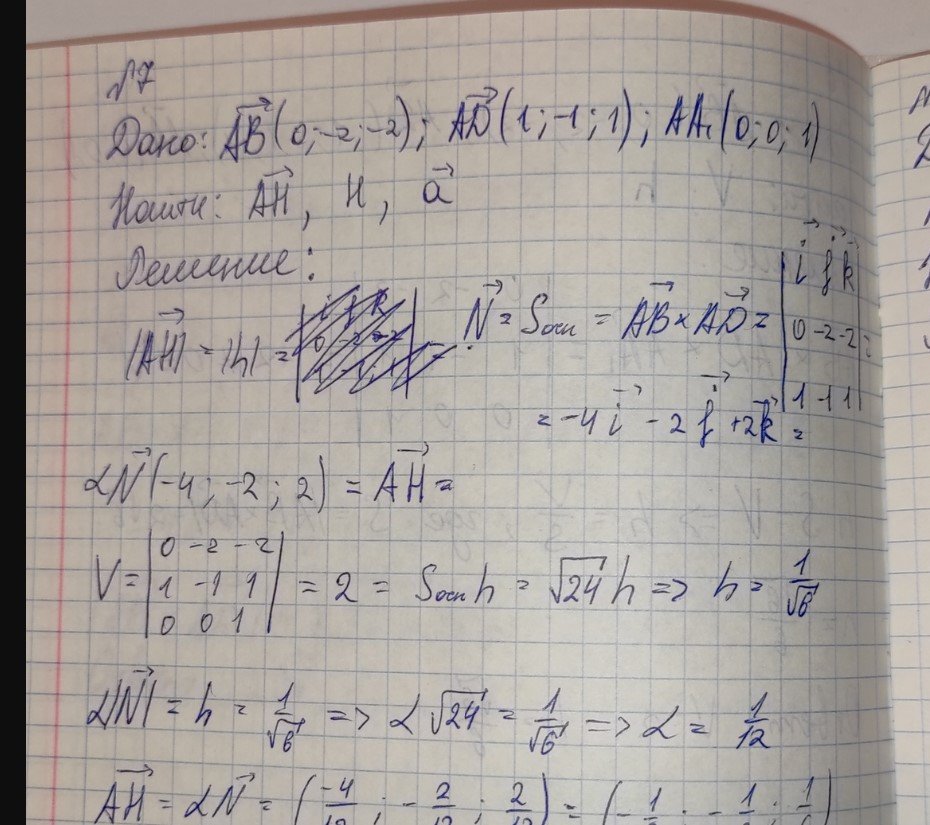 №7
Дано: AB(0;-2;-2); AD(1;-1;1); AA₁(0;0;1)
Найти: AH, H, a
Решение:
|AH| = |h| = N = Sосн = AB × AD = | i j k | 0 -2 -2 | 1 -1 1 | =
= -4i - 2j + 2k =
αN(-4; -2; 2) = AH =
V = | 0 -2 -2 | 1 -1 1 | 0 0 1 | = 2 = Sосн h = √24 h => h = 1/√6
α|N| = h = 1/√6 => α√24 = 1/√6 => α = 1/12
AH = αN = (-4/12; -2/12; 2/12) = (-1/ ; -1/ ; 1/ )